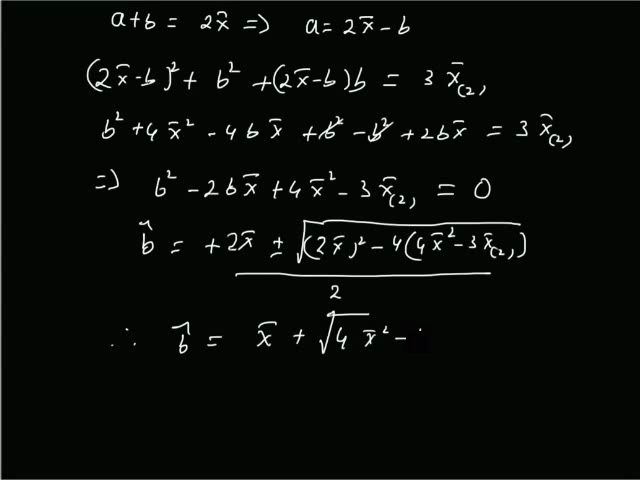 a+b = 2x̄ => a = 2x̄ - b
(2x̄-b)² + b² + (2x̄-b)b = 3 x̄₍₂₎
b² + 4x̄² - 4bx̄ + b² - b² + 2bx̄ = 3 x̄₍₂₎
=> b² - 2bx̄ + 4x̄² - 3x̄₍₂₎ = 0
b̂ = +2x̄ ± √((2x̄)² - 4(4x̄² - 3x̄₍₂₎)) / 2
∴ b̂ = x̄ + √(4 x̄² -